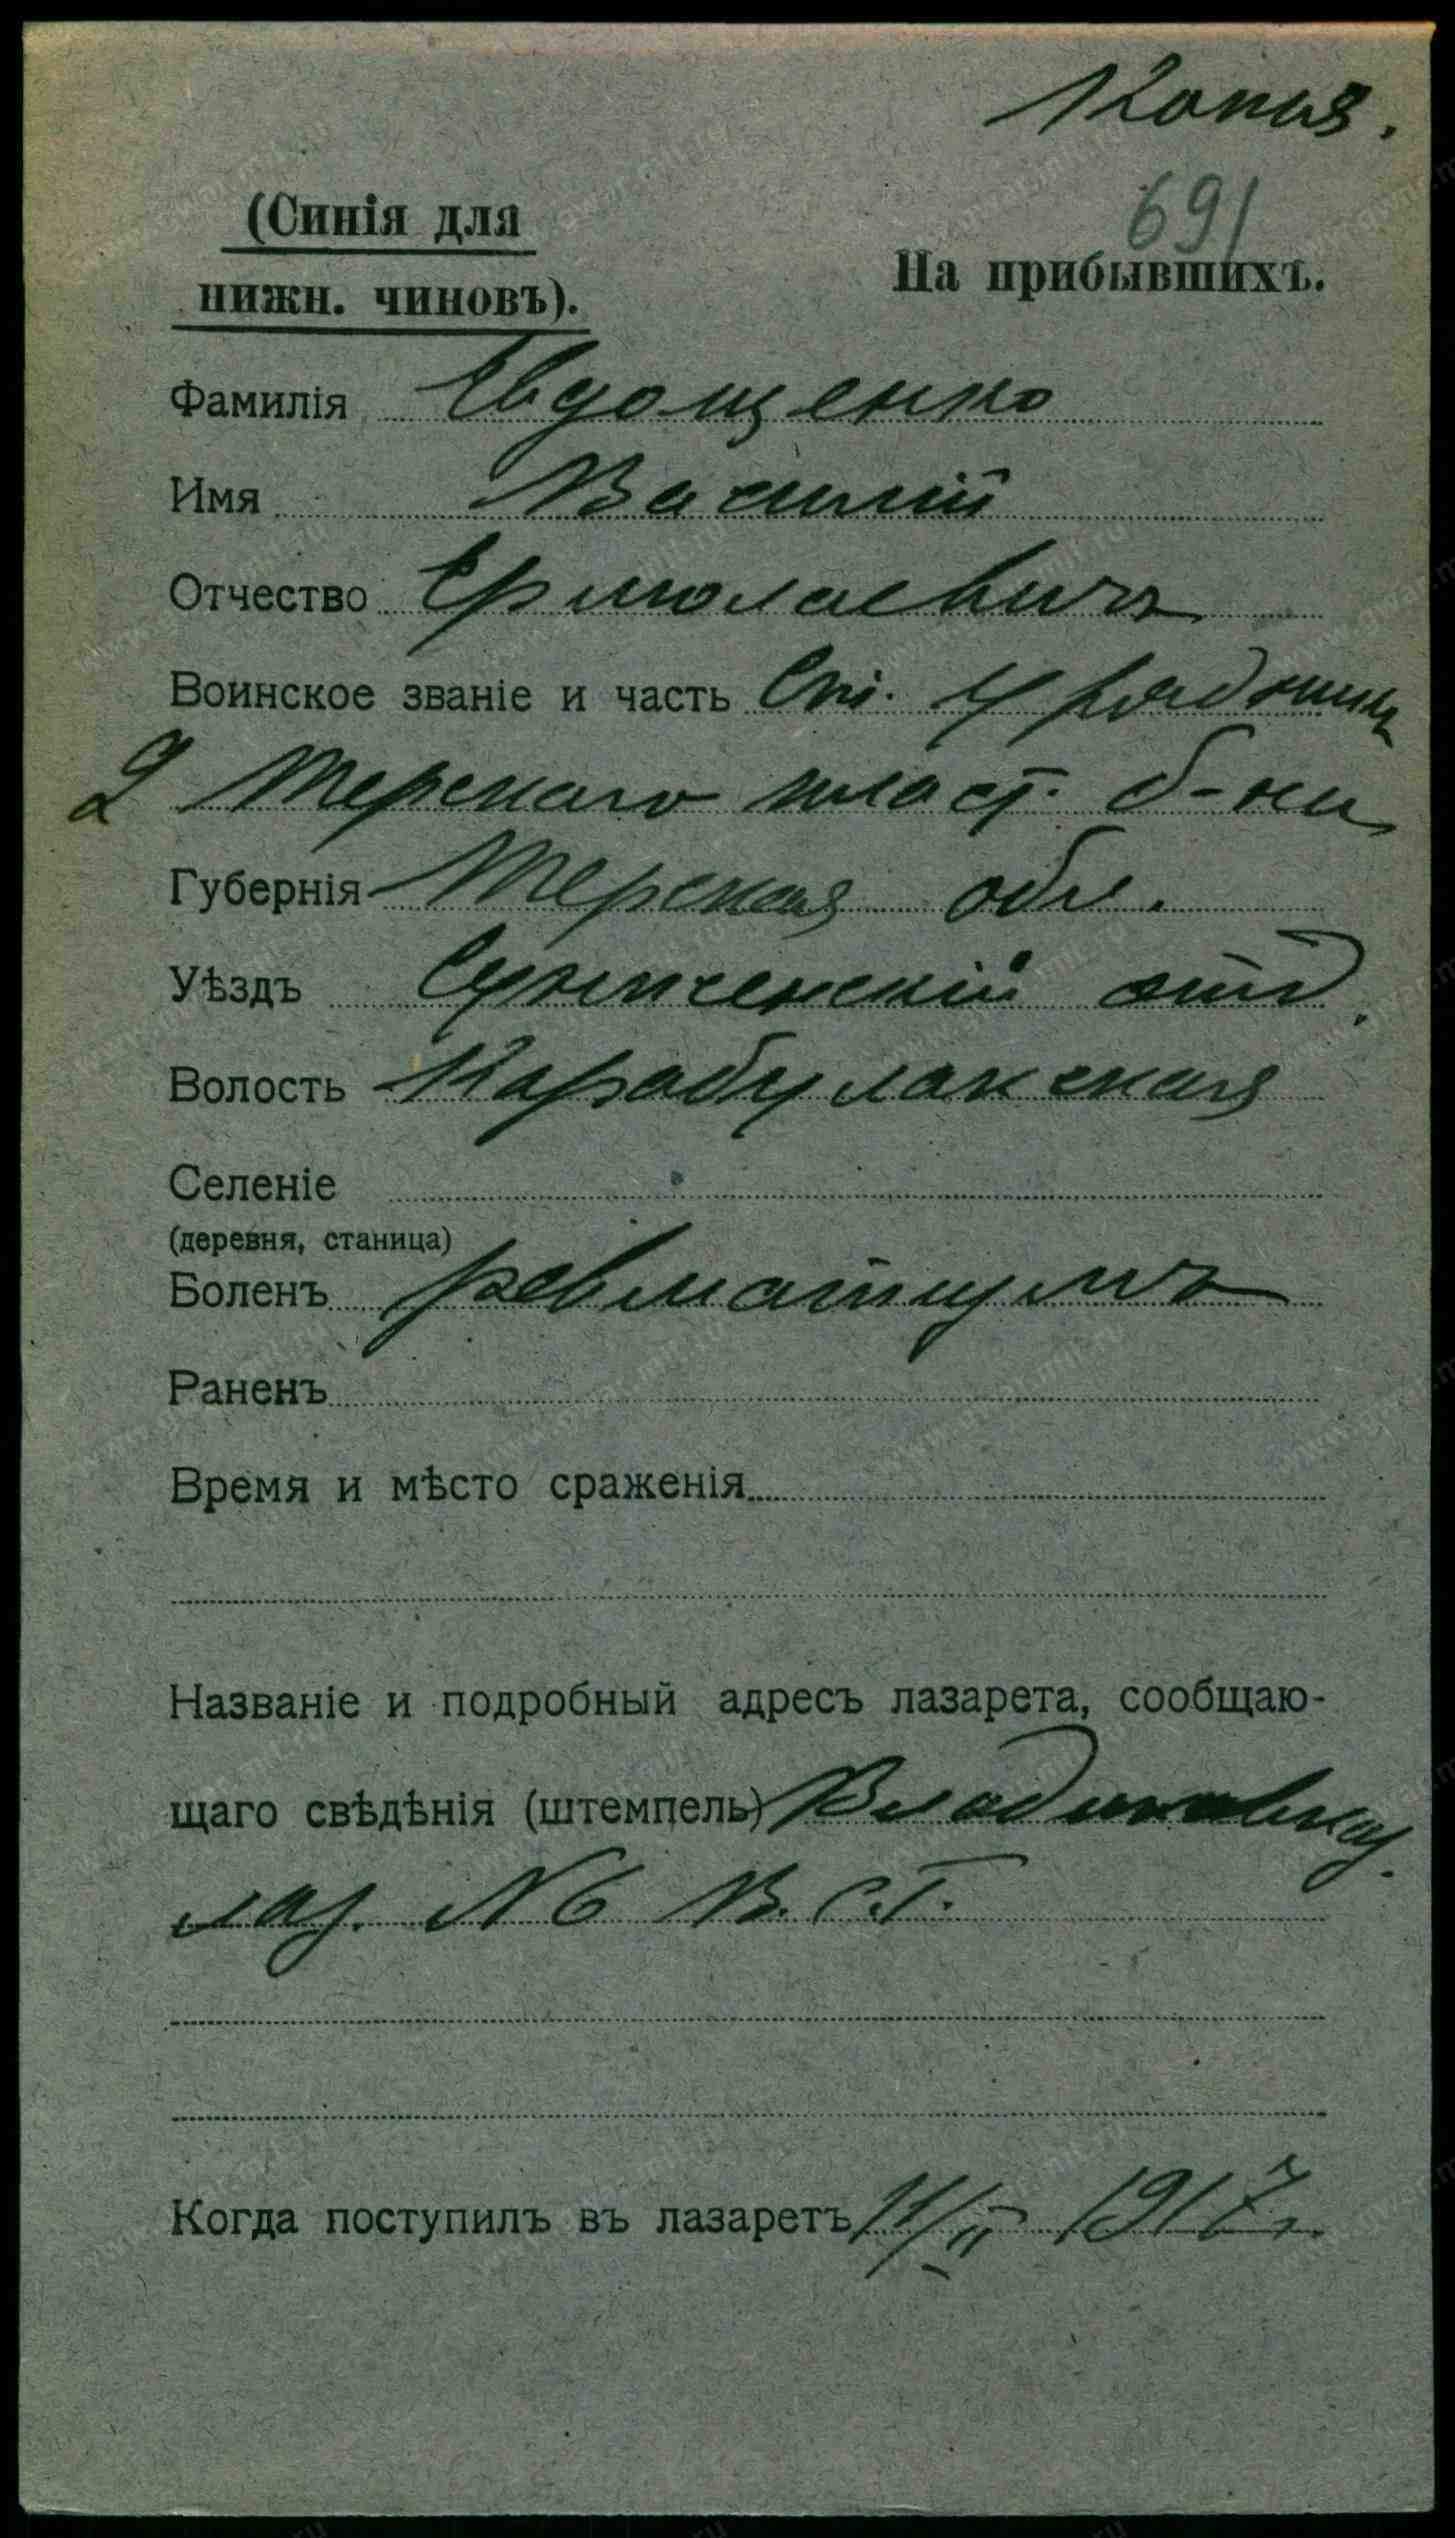 Копия.
691
(Синія для
нижн. чиновъ).
На прибывшихъ.
Фамилія Евдощенко
Имя Василій
Отчество Ермолаевичъ
Воинское званіе и часть Ст. Урядникъ
2 Терскаго пласт. б-на
Губернія Терская обл.
Уѣздъ Сунженскій отд.
Волость Карабулакская
Селеніе
(деревня, станица)
Боленъ ревматизмъ
Раненъ
Время и мѣсто сраженія
Названіе и подробный адресъ лазарета, сообщаю-
щаго свѣдѣнія (штемпель) Владикавказ.
лаз. №6 В.С.Г.
Когда поступилъ въ лазаретъ 11/II 1917 г.